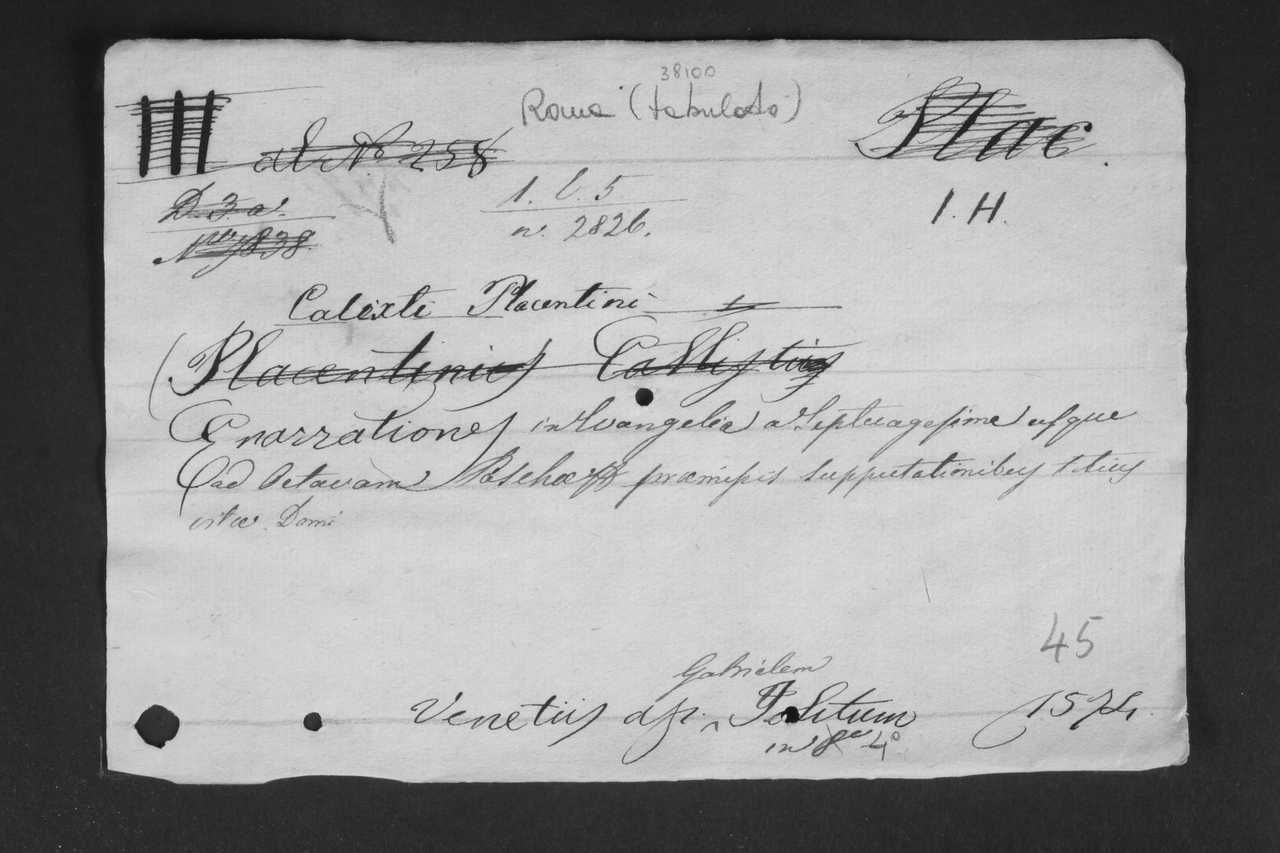 38100
Roma (tabulato)
Plac.
al N.o 258
D. 3. a.
1. C. 5
1. H.
N.ro 7838.
n. 2826.
Calixti Placentini
Placentinus Callistus
Enarrationes in Evangelia a Septuagesima usque
ad Octavam Paschæ præmissis supputationibus totius
vitæ Domi
45
Gabrielem
Venetiis ap. Jolitum 1574.
in 8.o 4.o